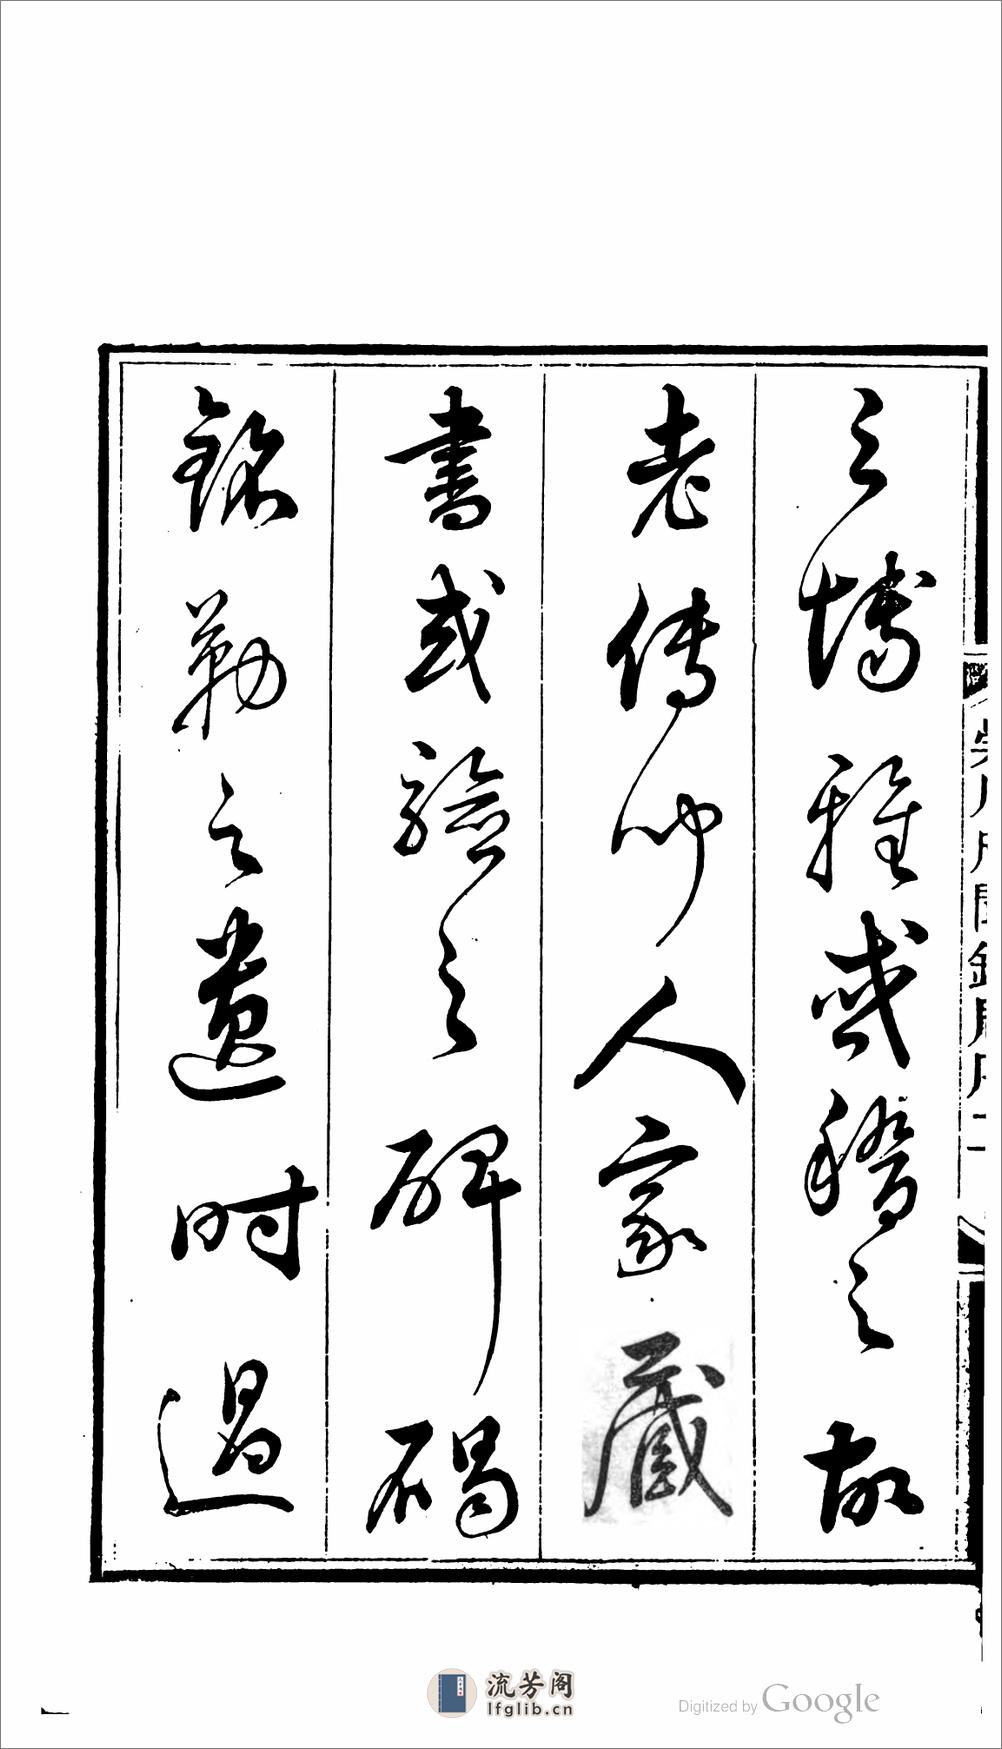 之博雅或稽之故
老傳聞人家藏
書或驗之碑碣
銘勒之遺時過
流芳阁
lfglib.cn
Digitized by Google